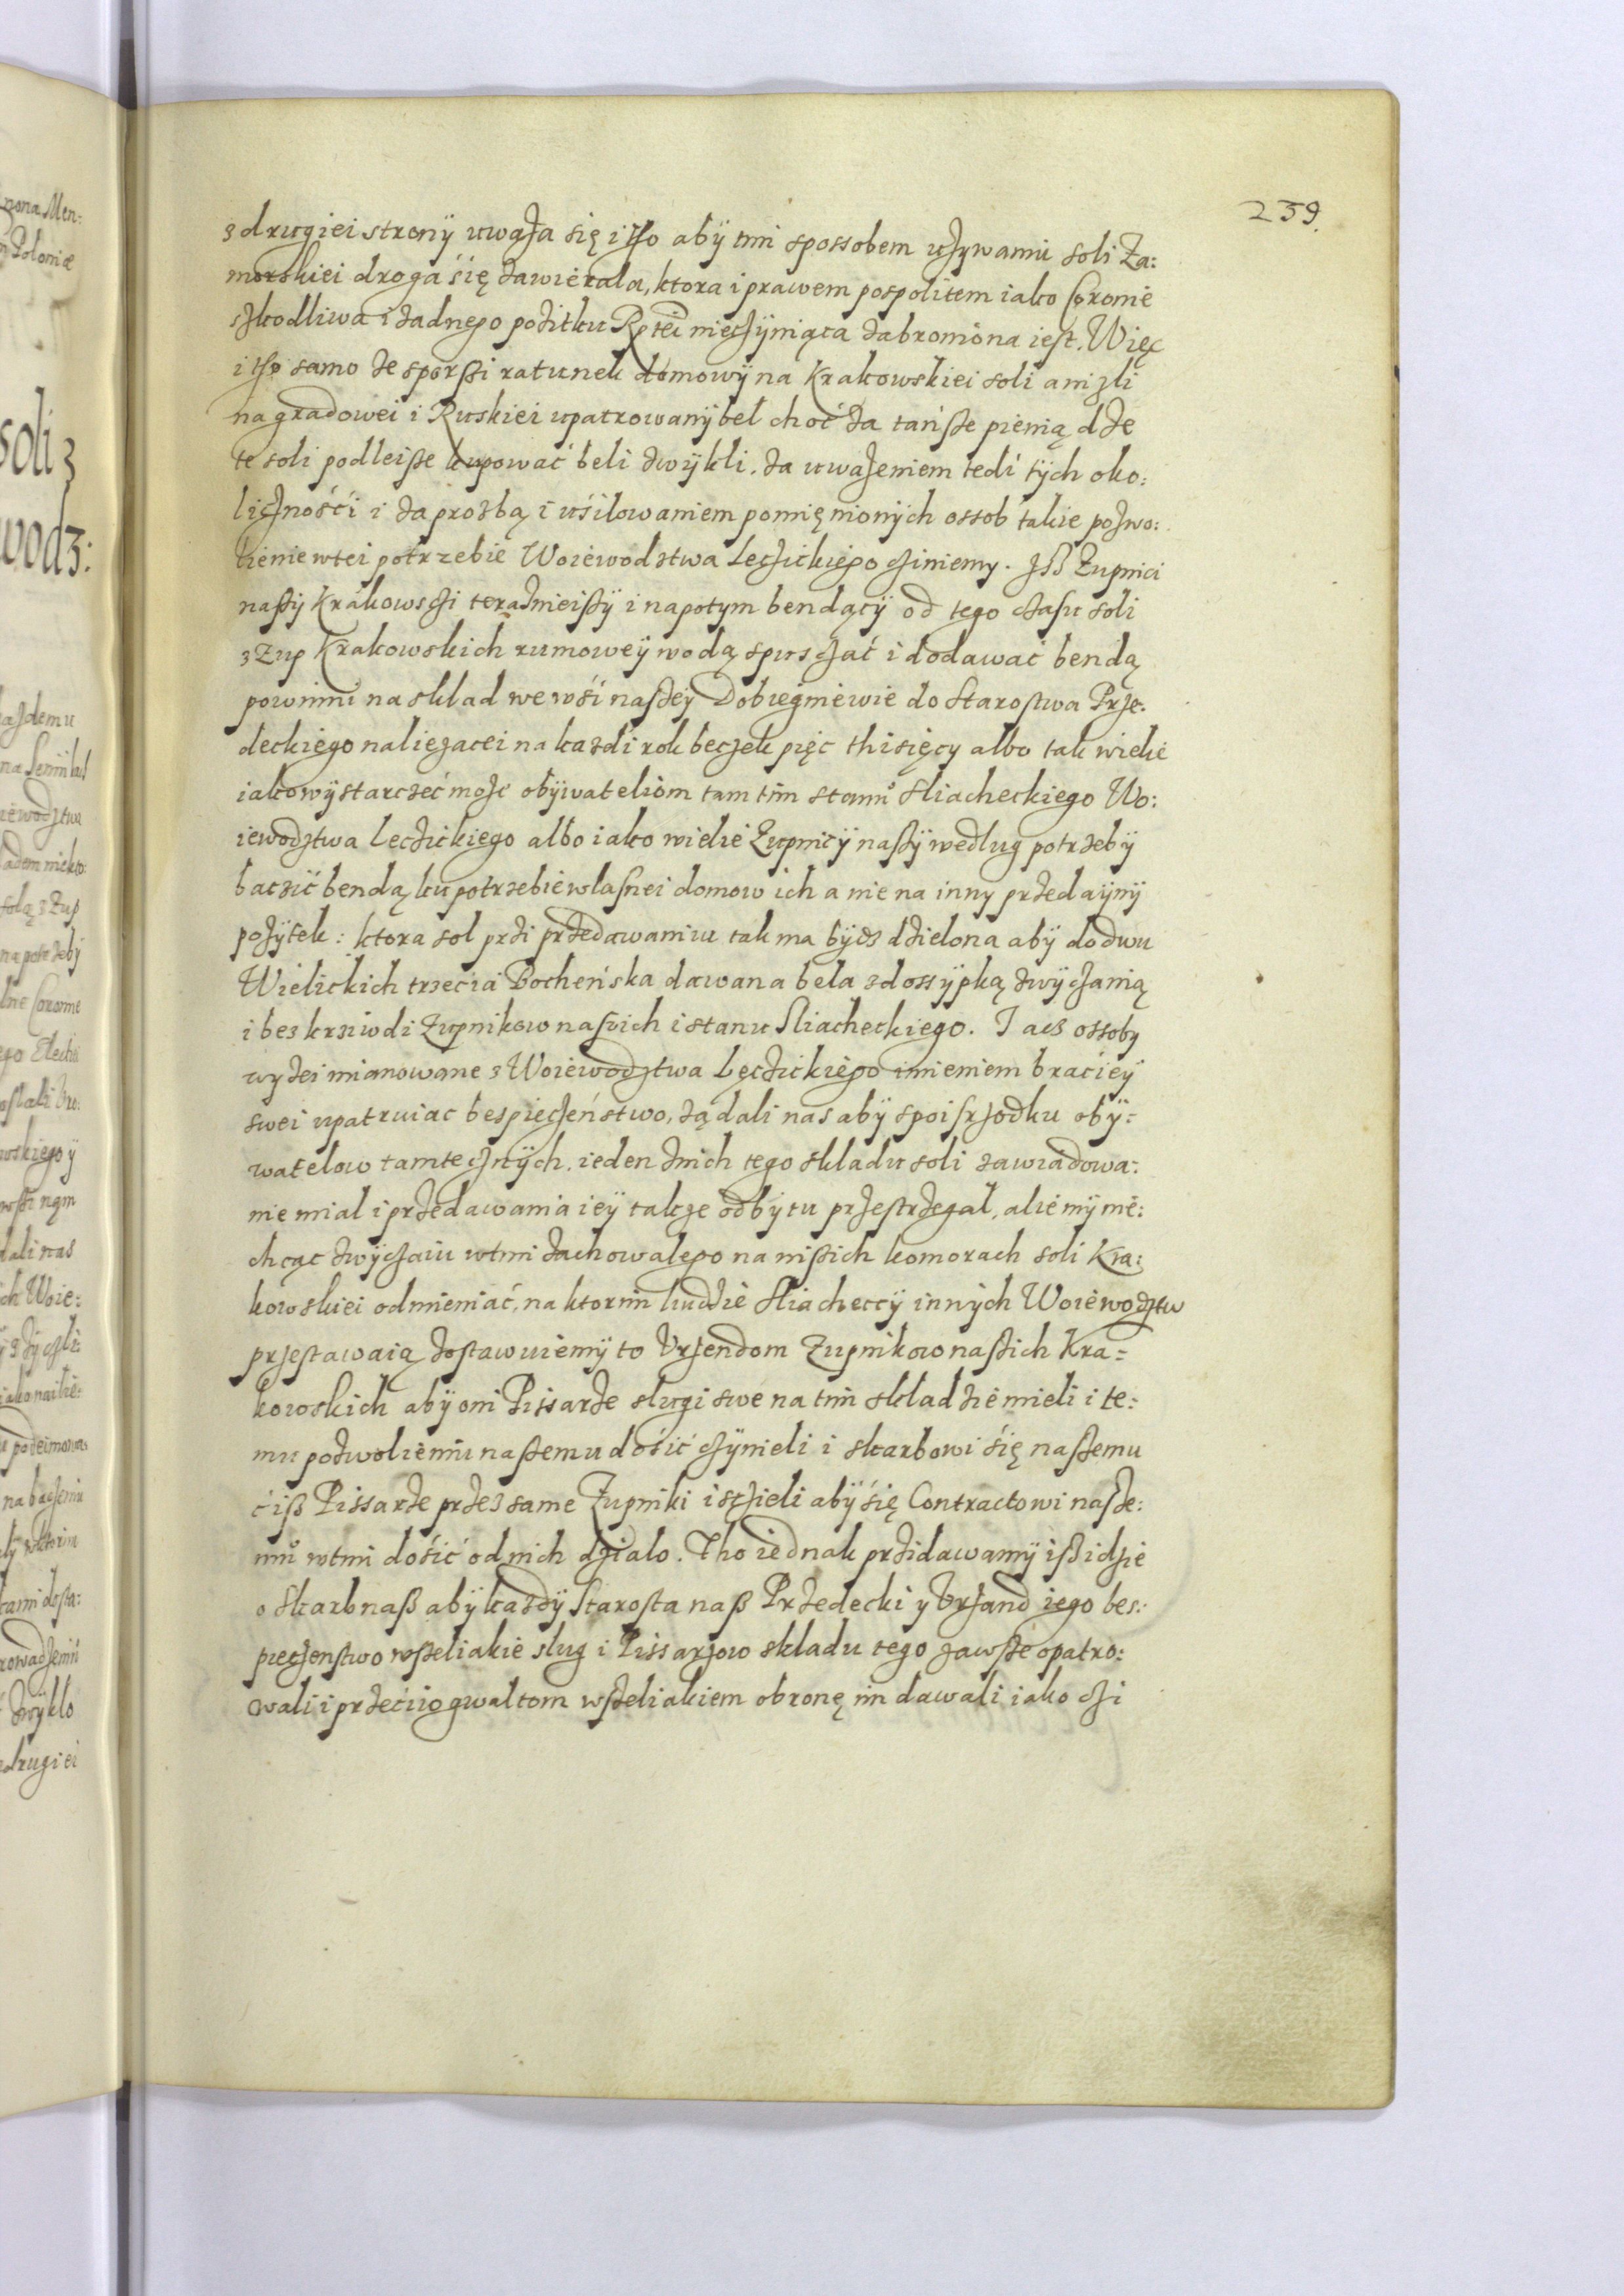 239.
z drugiei strony uważa się i tho aby tim spossobem użÿwaniu soli Za:
morskiei droga się zawierala, ktora i prawem pospolitem iako Coronie
szkodliwa i żadnego pożitku Rptei nieczÿniąca zabroniona iest. Więc
i tho samo że sporssi ratunek domowÿ na Krakowskiei soli aniżli
na gradowei i Ruskiei upatrowanÿ bel choć za tańsze pieniądze
te soli podleisse kupować beli zwÿkli. za uważeniem tedi tÿch oko:
liczności i za prozbą i usilowaniem pomięnionÿch ossob takie pozwo:
lienie wtei potrzebie Woiewodztwa Leczickiego cziniemy. Iss Zupnici
nassÿ Krakowsczi teraznieissÿ i napotym bendącÿ od tego czasu soli
z Zup Krakowskich rumoweÿ wodą spusczać i dodawać bendą
powinni na sklad we wśi naszeÿ Dobiegniewie do Starostwa Prze:
deckiego naliezacei na kazdi rok beczek pięc thisięcy albo tak wiele
iako wÿstarczeć może obÿwateliom tamtim stanu Sliacheckiego Wo:
iewodztwa Leczickiego albo iako wielie Zupnicÿ nassÿ wedlug potrzebÿ
baczić bendą ku potrzebie wlasnei domow ich a nie na inny przedaÿnÿ
pożÿtek: ktora sol przi przedawaniu tak ma bÿdz dzielona abÿ do dwu
Wielickich trzecia Bocheńska dawana bela z dossÿpką zwÿczanią
i bes krziwdi Zupnikow naszich i stanu Sliacheckiego. I acz ossoby
wyżei mianowane z Woiewodztwa Lęczickiego imieniem braciey
swei upatruiac bespieczeństwo, żądali nas abÿ spoisrzodku obÿ:
watelow tamtecznÿch. ieden znich tego skladu soli zawiadowa:
nie mial i przedawania ieÿ takze odbÿtu przestrzegal, alie mÿ nie:
chcąc zwÿczaiu wtim zachowalego na inssich komorach soli Kra:
kowskiei odmieniać, na ktorim liudzie Sliacheccÿ innÿch Woiewodztw
przestawaią zostawuiemÿ to Vrzendom Zupnikow nassich Kra=
kowskich abÿ oni Pissarze slugi swe na tim skladzie mieli i te:
mu pozwolieniu naszemu dosić czÿnieli i skarbowi się naszemu
ciss Pissarze przez same Zupniki isczieli abÿ się Contractowi nasze:
mu wtim dosić od nich dzialo. Tho iednak przidawamÿ iss idzie
o Skarb nass abÿ kazdÿ Starosta nass Przedecki y Vrzand iego bes:
pieczenstwo wszeliakie slug i Pissarzow skladu tego zawsze opatro:
wali i przeciw gwaltom wszeliakiem obronę im dawali iako czi